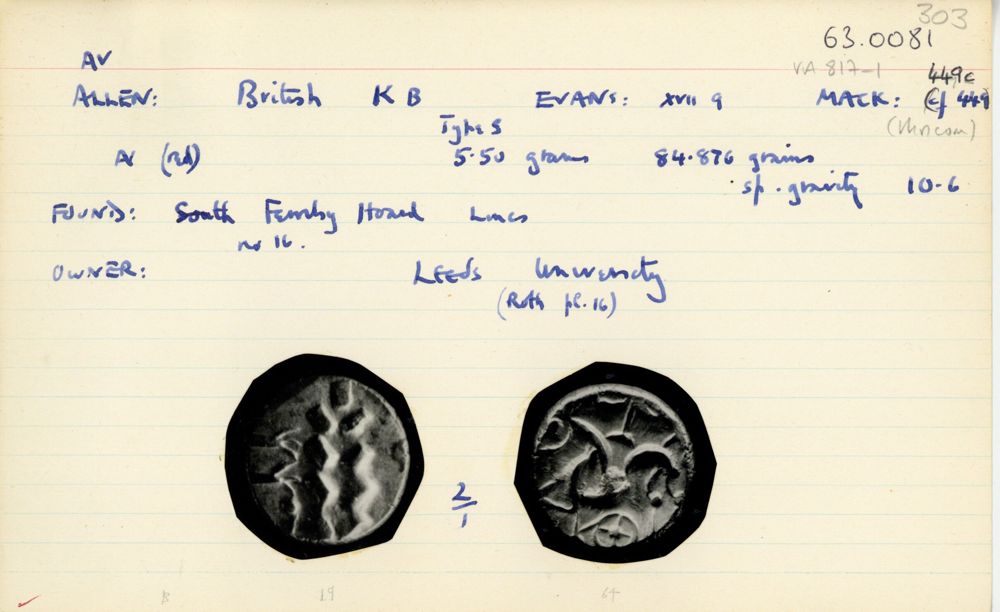 303
63.0081
AV VA 817-1 449c
ALLEN: British K B EVANS: XVII 9 MACK: (cf 449)
Type S
AV (red) 5.50 grams 84.876 grains
sp. gravity 10.6
FOUND: South Ferriby Hoard Lincs
no 16.
OWNER: LEEDS University
(Roth pl. 16)
2/1
B 19 64